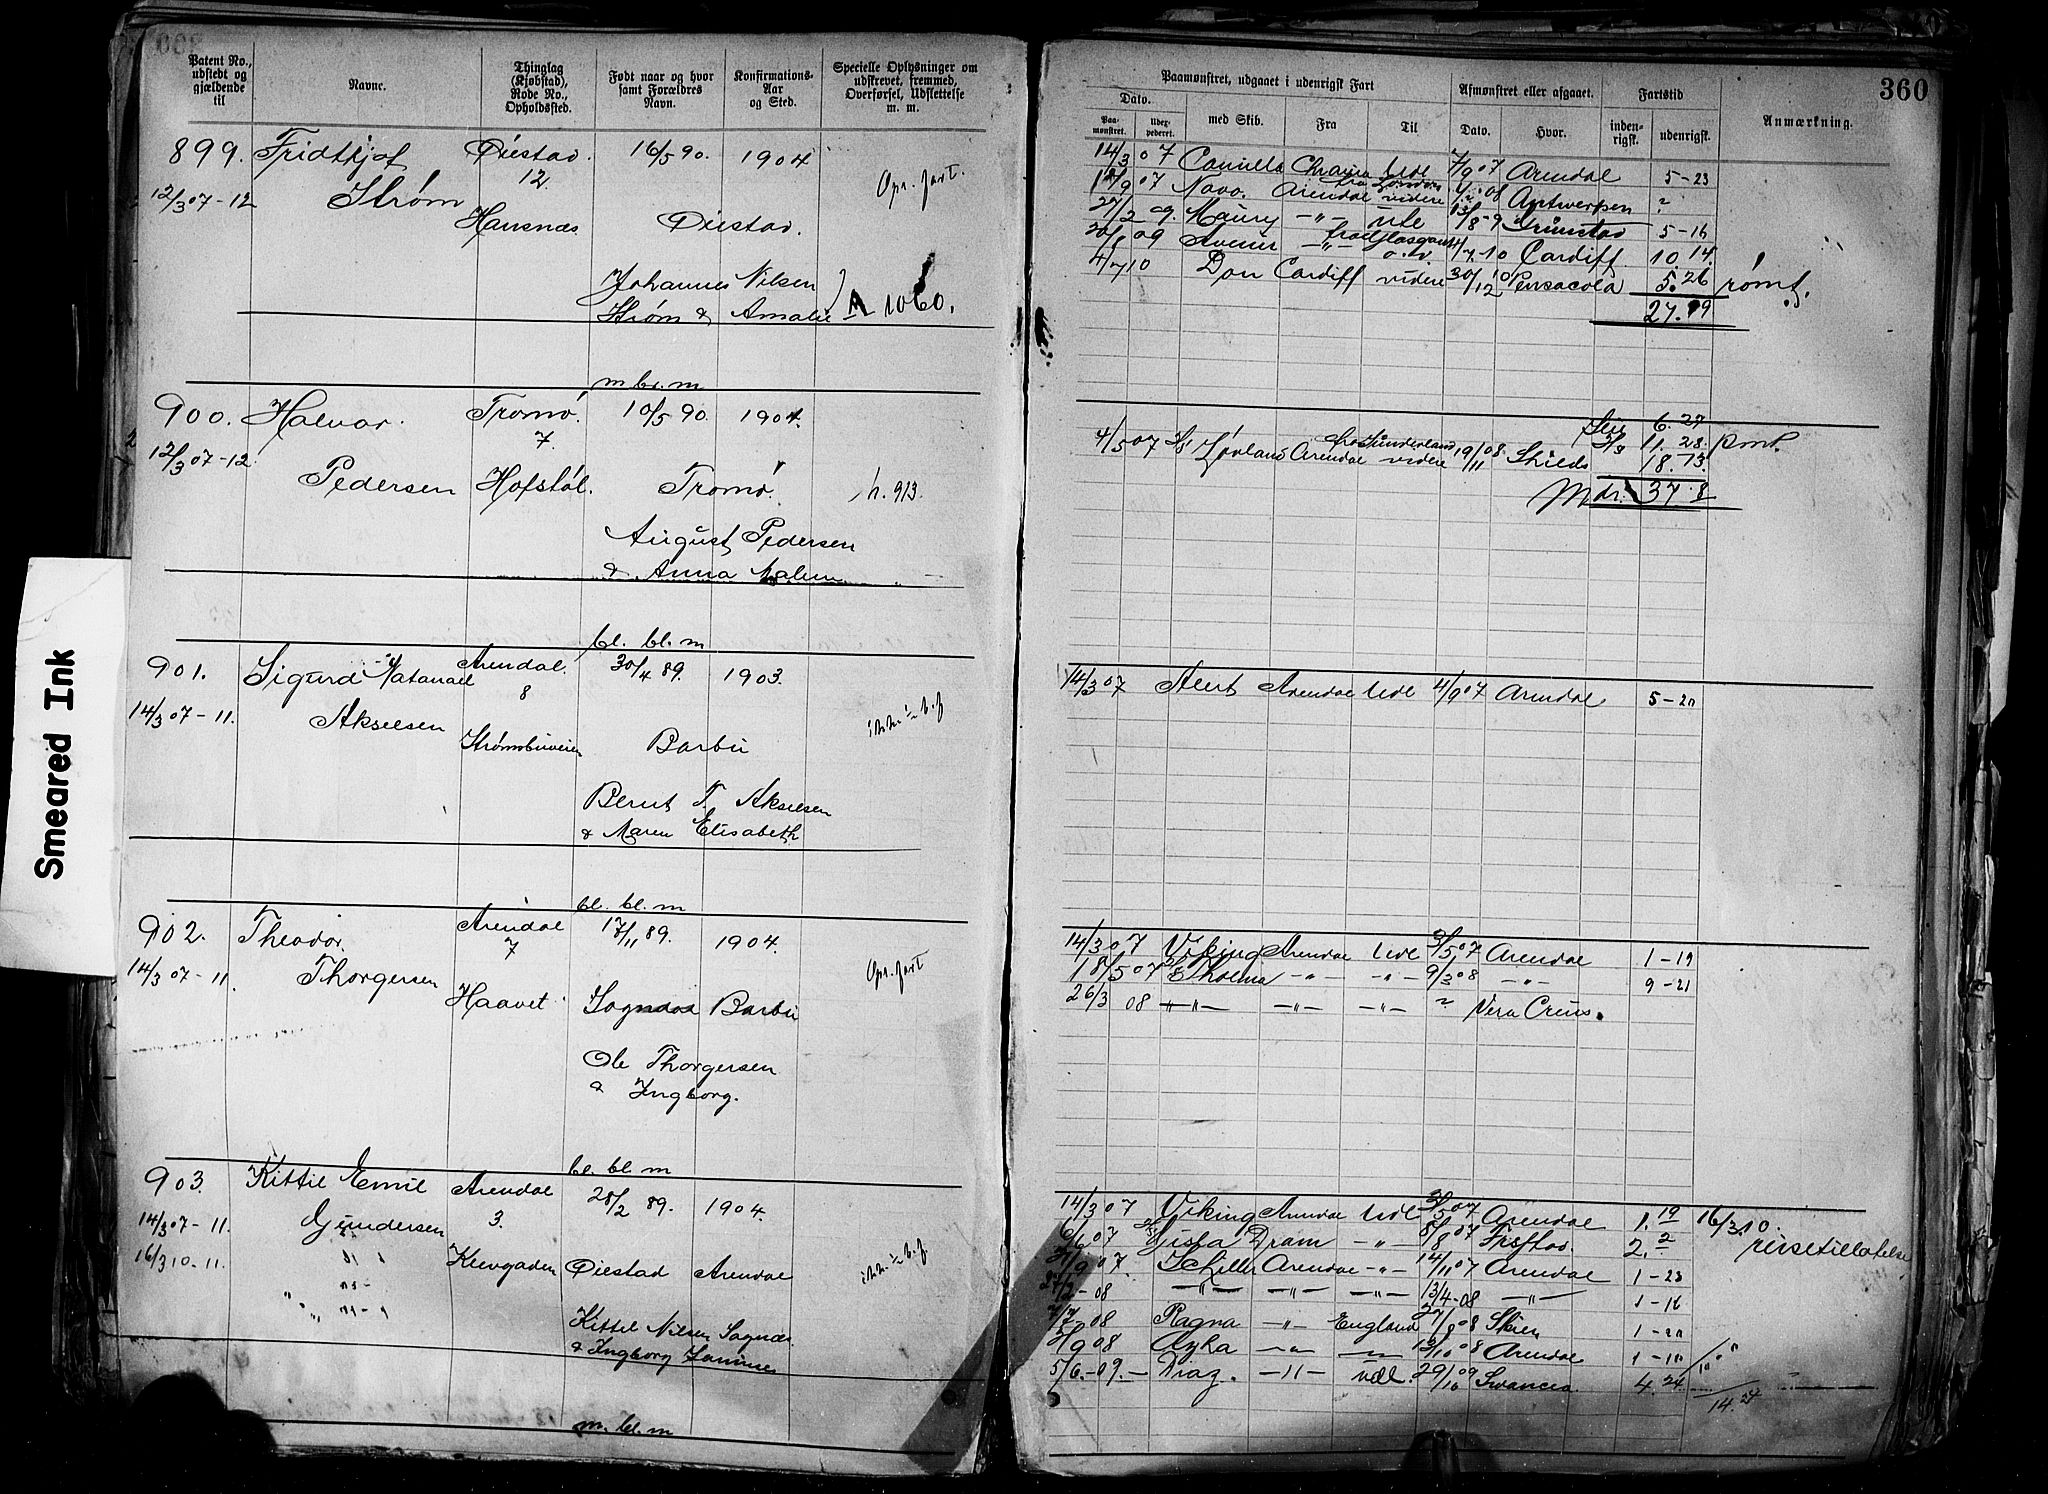 Patent No., udstedt og gjældende til
Navne.
Thinglag (Kjøbstad), Rode No., Opholdssted.
Født naar og hvor samt Forældres Navn.
Konfirmations-Aar og Sted.
Specielle Oplysninger om udskrevet, fremmed, Overførsel, Udslettelse m. m.
899. Fridthjof Øiestad. 16/5 90. 1904
12.
12/3 07-12 Strøm Opr. fart.
Hausnæs Øiestad.
Johannes Nilsen
Strøm & Amalie A 1060.
m bl. m
900. Halvar Tromø 10/5 90. 1904.
7.
12/3 07-12. Pedersen Hofstøl. Tromø. h. 913.
August Pedersen
& Anna Malene
bl. bl. m
901. Sigurd Natanael Arendal. 30/4 89. 1903.
8
14/3 07-11. Akselsen
Strømsbuveien Barbu
Bernt T. Akselsen
& Maren Elisabeth
bl. bl. m
902. Theodor Arendal 17/11 89. 1904.
7
14/3 07-11. Thorgersen Opr. fart
Haavet Barbu
Ole Thorgersen
& Ingborg.
bl. bl. m
903. Kittil Emil Arendal 28/2 89. 1904.
14/3 07-11. Gundersen 3.
16/3 10-11. Øiestad Arendal
Kittil Nilsen Sagnæs
& Ingborg
m. bl. m
Smeared Ink
360
Paamønstret, udgaaet i udenrigsk Fart
Afmønstret eller afgaaet.
Fartstid
Anmærkning.
Dato.
Paa-mønstret.
Udex-pederet.
med Skib.
Fra
Til
Dato.
Hvor.
inden-rigsk.
udenrigsk.
14/3 07 Camilla Chrania Udl 7/9 07 Arendal 5-23
Arendal videre Antwerpen ?
27/2 09. -"- 13/8 -9 Grimstad 5-16
4/7-10 Cardiff 10 14.
4/7 10 Don Cardiff videre 30/12 10 Pensacola 5. 26 rømt.
27. 19
6. 27
11. 28. rømt.
4/5 07 Arendal videre 19/11 08. Shields 18. 13.
Mdr. 37. 8
14/3 07 Alert Arendal Udl 4/9 07 Arendal 5-20
14/3 07 Viking Arendal Udl 3/5 07 Arendal 1-19
18/5 07 Tholma -"- -"- 9/3 08 -"- 9-21
26/3 08 -"- -"- -"- ? Vera Crus.
14/3 07 Viking Arendal Udl 3/5 07 Arendal 1. 19 16/3 10.
6/6 07 Dram -"- 8/8 07 2. 2 reisetilladelse
21/9 07. Schiller Arendal -"- 14/11 07 Arendal 1-23
27/2-08 -"- -"- -"- 13/4-08 -"- 1-16
7/7-08 Ragna -"- England 27/8 08 Skien 1-20
2/9 08 -"- -"- 12/10 08 Arendal 1-10
5/6.-09.- Diaz. -"- udl. 29/10 09 Swansea. 4. 24.
14. 24